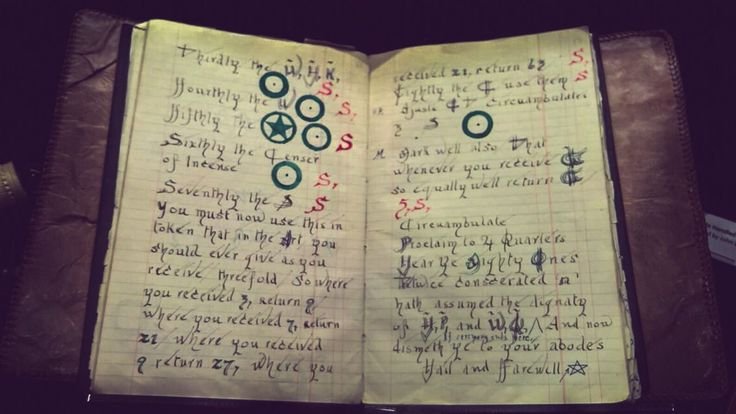 Thirdly the Ü, H, K,
Fourthly the W S,
S,
Fifthly the S
Sixthly the Censer
of Incense S,
Seventhly the S S
You must now use this in
token that in the Art you
should ever give as you
receive threefold So where
you received 3, return 9,
where you received 7, return
21 where you received
9 return 27, where you
received 21, return 63 S,
Eightly the use them S
S
Mark well also that
whenever you receive
so equally well return
S, S,
Circuambulate
Proclaim to 4 Quarters
Hear Ye Mighty One's
twice conscerated
hath assumed the dignaty
of H, P, and W, And now
If ceremony ends here,
dismeth ye to your abode's
Hail and Farewell,